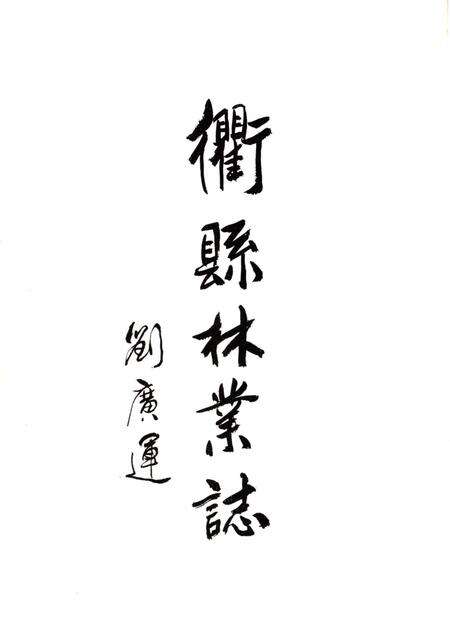 衢縣林業誌
劉廣運